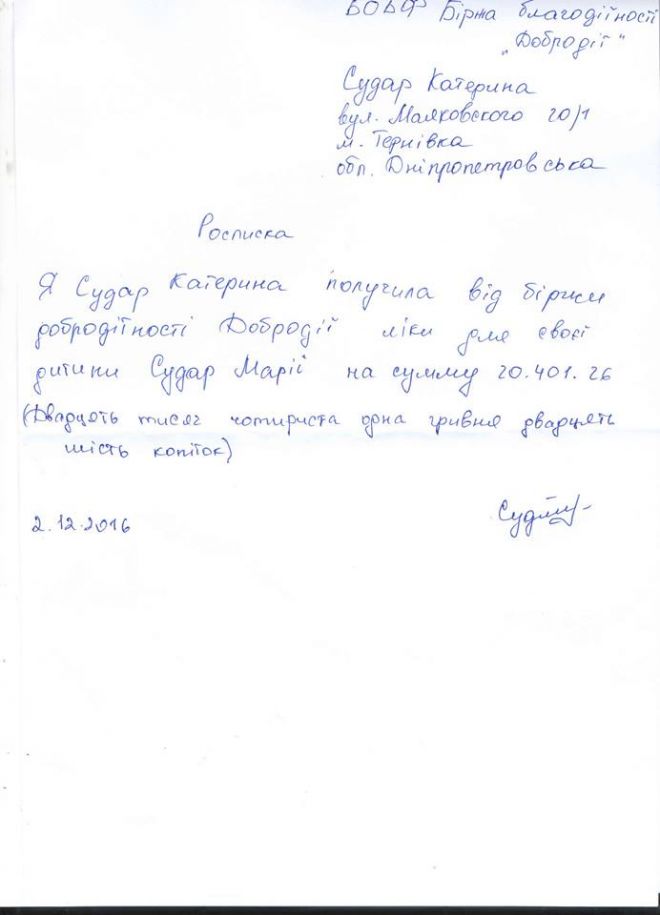 БОБФ Біржа благодійності
„Добродії"
Судар Катерина
вул. Маяковского 20/1
м. Тернівка
обл. Дніпропетровська
Росписка
Я Судар Катерина получила від біржи
добродійності Добродії ліки для своєї
дитини Судар Марії на сумму 20.401.26
(Двадцять тисяч чотириста одна гривня двадцять
шість копійок)
2.12.2016